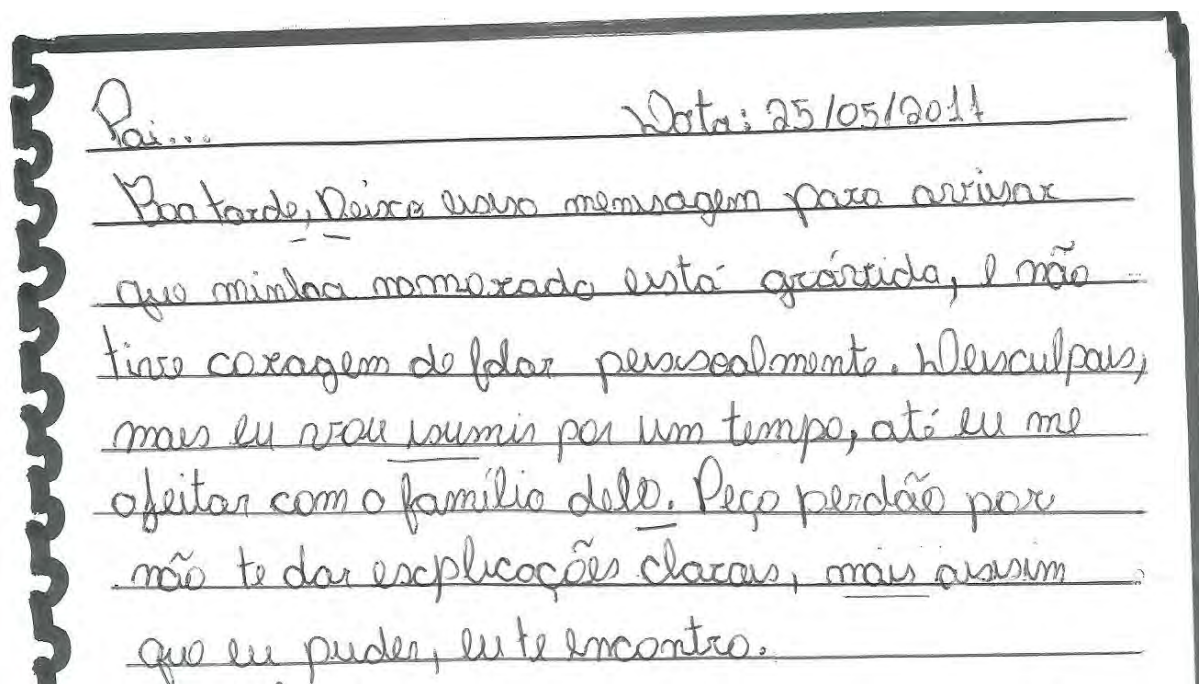 Pai... Data: 25/05/2011
Boa tarde, Deixo essa mensagem para avisar
que minha namorada está grávida, e não
tive coragem de falar pessoalmente. Desculpas,
mais eu vou sumir por um tempo, até eu me
ajeitar com a família dela. Peço perdão por
não te dar explicações claras, mais assim
que eu puder, eu te encontro.